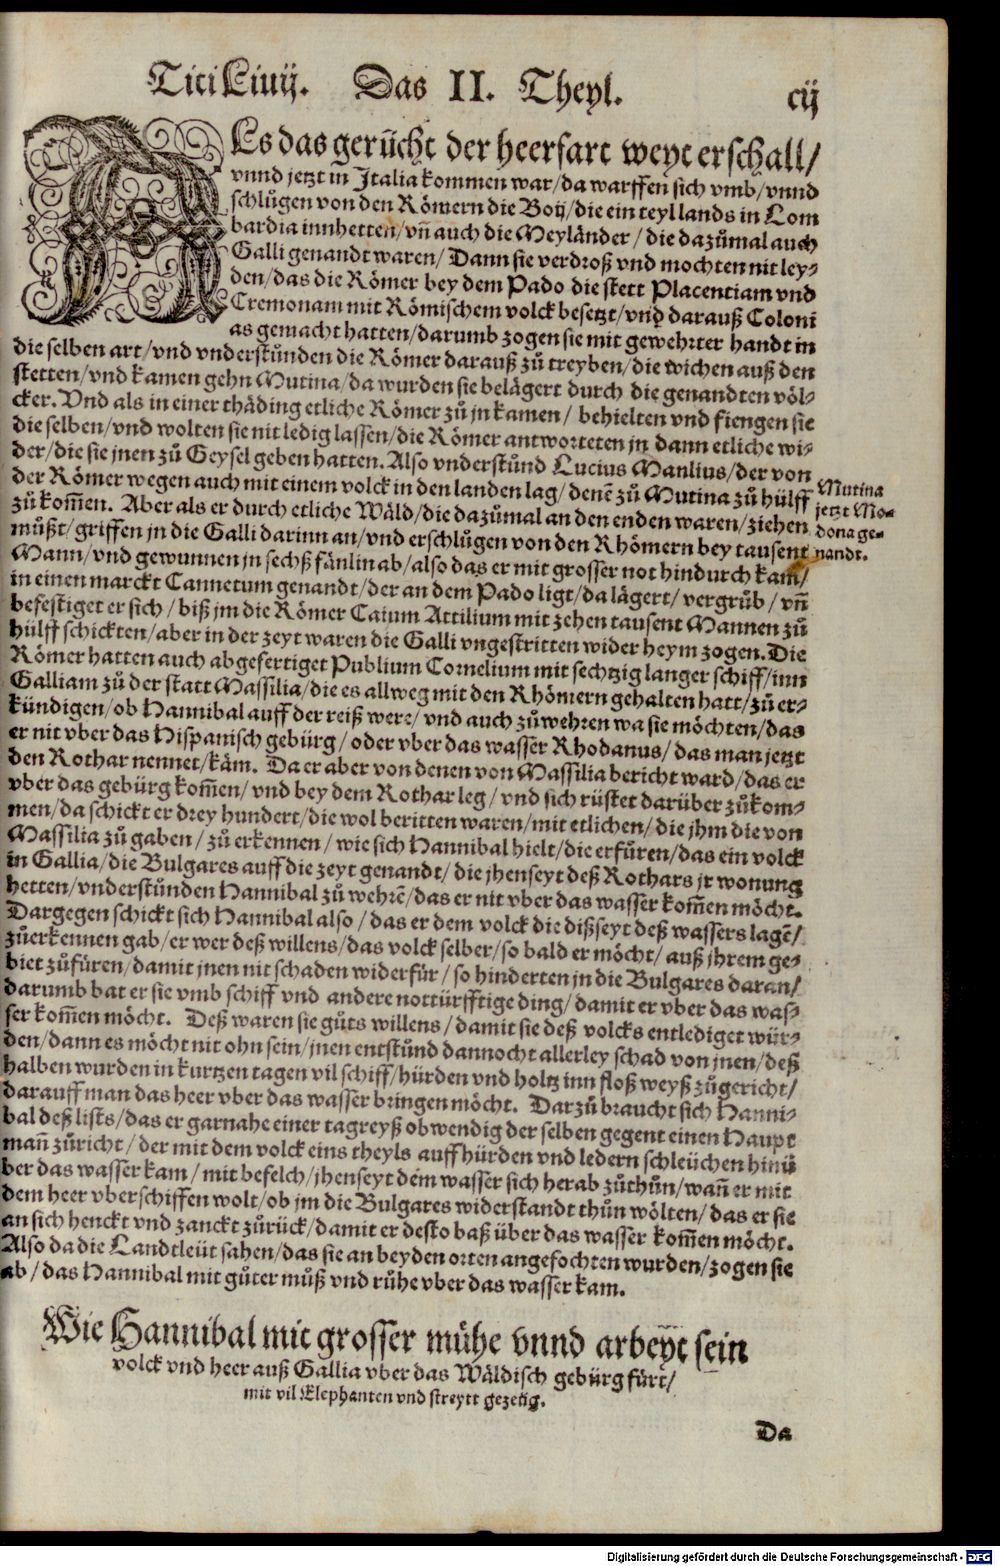 Titi Liuij. Das II. Theyl. cij
ALs das gerücht der heerfart weyt erschall/
vnnd jetzt in Italia kommen war/ da warffen sich vmb/ vnnd
schlůgen von den Römern die Boij/ die ein teyl lands in Lom
bardia innhetten/ vñ auch die Meyländer/ die dazůmal auch
Galli genandt waren/ Dann sie verdroß vnd mochten nit ley-
den/ das die Römer bey dem Pado die stett Placentiam vnd
Cremonam mit Römischem volck besetzt/ vnd darauß Coloni
as gemacht hatten/ darumb zogen sie mit gewehrter handt in
die selben art/ vnd vnderstůnden die Römer darauß zů treyben/ die wichen auß den
stetten/ vnd kamen gehn Mutina/ da wurden sie belägert durch die genandten völ-
cker. Vnd als in einer thäding etliche Römer zů jn kamen/ behielten vnd fiengen sie
die selben/ vnd wolten sie nit ledig lassen/ die Römer antworteten jn dann etliche wi-
der/ die sie jnen zů Geysel geben hatten. Also vnderstůnd Lucius Manlius/ der von
der Römer wegen auch mit einem volck in den landen lag/ denẽ zů Mutina zů hülff
zů kom̃en. Aber als er durch etliche Wäld/ die dazůmal an den enden waren/ ziehen
můßt/ griffen jn die Galli darinn an/ vnd erschlůgen von den Rhömern bey tausent
Mann/ vnd gewunnen jn sechß fänlin ab/ also das er mit grosser not hindurch kam/
in einen marckt Cannetum genandt/ der an dem Pado ligt/ da lägert/ vergrůb/ vñ
befestiget er sich/ biß jm die Römer Caium Attilium mit zehen tausent Mannen zů
hülff schickten/ aber in der zeyt waren die Galli vngestritten wider heym zogen. Die
Römer hatten auch abgefertiget Publium Cornelium mit sechtzig langer schiff/ inn
Galliam zů der statt Massilia/ die es allweg mit den Rhömern gehalten hatt/ zů er-
kündigen/ ob Hannibal auff der reiß were/ vnd auch zů wehren wa sie möchten/ das
er nit vber das Hispanisch gebürg/ oder vber das wasser Rhodanus/ das man jetzt
den Rothar nennet/ käm. Da er aber von denen von Massilia bericht ward/ das er
vber das gebürg kom̃en/ vnd bey dem Rothar leg/ vnd sich rüstet darüber zů kom-
men/ da schickt er drey hundert/ die wol beritten waren/ mit etlichen/ die jhm die von
Massilia zů gaben/ zů erkennen/ wie sich Hannibal hielt/ die erfůren/ das ein volck
in Gallia/ die Bulgares auff die zeyt genandt/ die jhenseyt deß Rothars jr wonung
hetten/ vnderstůnden Hannibal zů wehrẽ/ das er nit vber das wasser kom̃en möcht.
Dargegen schickt sich Hannibal also/ das er dem volck die dißseyt deß wassers lagẽ/
zů erkennen gab/ er wer deß willens/ das volck selber/ so bald er möcht/ auß jhrem ge-
biet zů füren/ damit jnen nit schaden widerfür/ so hinderten jn die Bulgares daran/
darumb bat er sie vmb schiff vnd andere nottürfftige ding/ damit er vber das was-
ser kom̃en möcht. Deß waren sie gůts willens/ damit sie deß volcks entlediget wür-
den/ dann es möcht nit ohn sein/ jnen entstůnd dannocht allerley schad von jnen/ deß
halben wurden in kurtzen tagen vil schiff/ hürden vnd holtz inn floß weyß zů gericht/
darauff man das heer vber das wasser bringen möcht. Darzů braucht sich Hanni-
bal deß lists/ das er garnahe einer tagreyß obwendig der selben gegent einen Haupt
mañ zů richt/ der mit dem volck eins theyls auff hürden vnd ledern schleüchen hinü
ber das wasser kam/ mit befelch/ jhenseyt dem wasser sich herab zů thůn/ wañ er mit
dem heer vberschiffen wolt/ ob jm die Bulgares widerstandt thůn wölten/ das er sie
an sich henckt vnd zanckt zů rück/ damit er desto baß über das wasser kom̃en möcht.
Also da die Landtleüt sahen/ das sie an beyden orten angefochten wurden/ zogen sie
ab/ das Hannibal mit gůter můß vnd růhe vber das wasser kam.
Mutina
jetzt Mo-
dona ge-
nandt.
Wie Hannibal mit grosser mühe vnnd arbeyt sein
volck vnd heer auß Gallia vber das Wäldisch gebürg fürt/
mit vil Elephanten vnd streytt gezeüg.
Da
Digitalisierung gefördert durch die Deutsche Forschungsgemeinschaft - DFG